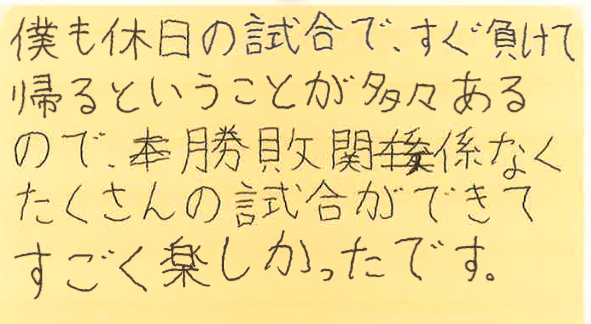 僕も休日の試合で、すぐ負けて
帰るということが多々ある
ので、勝敗関係なく
たくさんの試合ができて
すごく楽しかったです。